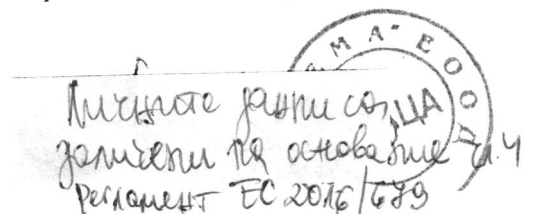 МА" ЕООД
ЦА
Личните данни са
заличени на основание чл.4
Регламент ЕС 2016/679